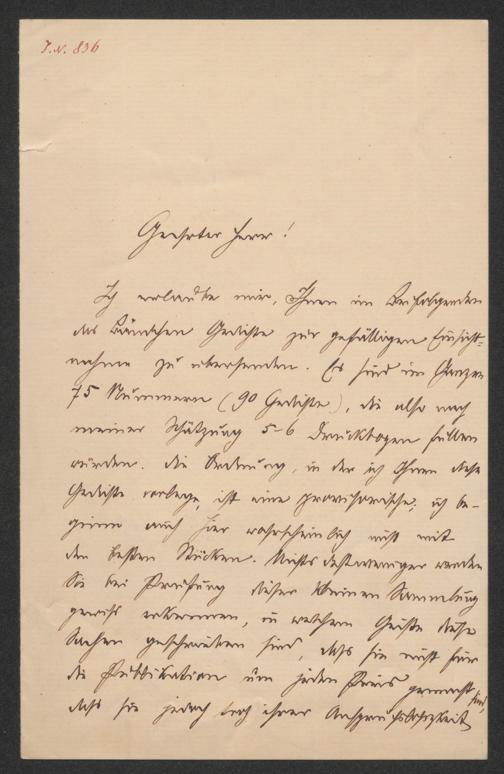 I.N. 836
Geehrter Herr!
Ich erlaube mir, Ihnen im Beifolgenden
das Bändchen Gedichte zur gefälligen Einsicht=
nahme zu übersenden. Es sind im Ganzen
75 Nummern (90 Gedichte), die also nach
meiner Schätzung 5-6 Druckbogen füllen
würden. Die Ordnung, in der ich Ihnen diese
Gedichte vorlege, ist eine provisorische; ich be-
ginne auch hier wahrscheinlich nicht mit
den besten Stücken. Nichts destoweniger werden
Sie bei Prüfung dieser kleinen Sammlung
gewiß erkennen, in welchem Geiste diese
Sachen geschrieben sind, daß sie nicht für
die Publikation um jeden Preis gemacht sind,
daß sie jedoch trotz ihrer Anspruchslosigkeit